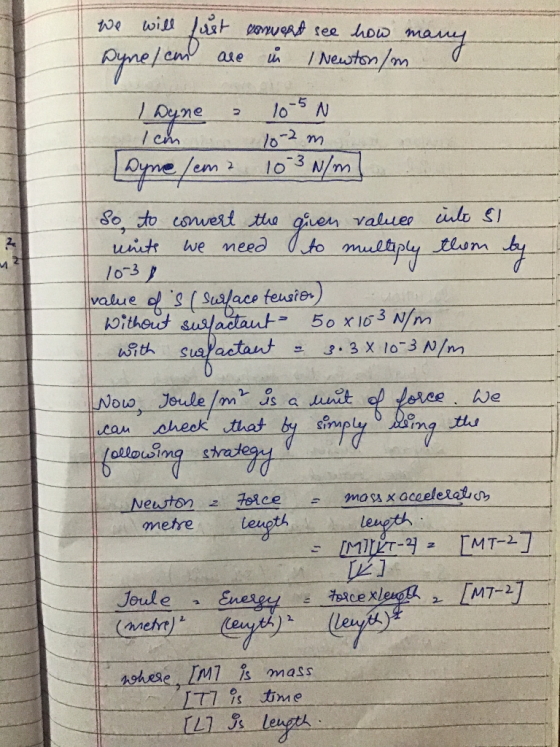 We will first convert see how many
Dyne/cm are in 1 Newton/m
1 Dyne = 10⁻⁵ N
1 cm 10⁻² m
Dyne/cm = 10⁻³ N/m
So, to convert the given values into SI
units we need to multiply them by
10⁻³,
value of 'S (Surface tension)
Without surfactant = 50 × 10⁻³ N/m
with surfactant = 3.3 × 10⁻³ N/m
Now, Joule/m² is a unit of force. We
can check that by simply using the
following strategy
Newton = Force = mass × acceleration
metre length length.
= [M][LT-2] = [MT-2]
[L]
Joule = Energy = Force × length = [MT-2]
(metre)² (length)² (length)²
where, [M] is mass
[T] is time
[L] is length.